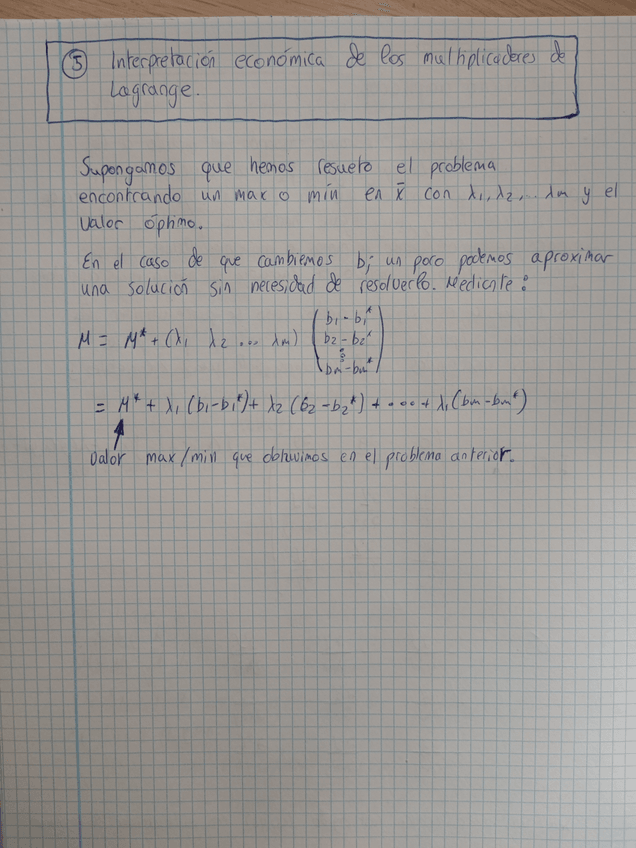 ⑤ Interpretación económica de los multiplicadores de
Lagrange.
Supongamos que hemos resuelto el problema
encontrando un max o mín en x̄ con λ₁, λ₂, ... λm y el
valor óptimo.
En el caso de que cambiemos bj un poco podemos aproximar
una solución sin necesidad de resolverlo. Mediante:
M = M* + (λ₁ λ₂ ... λm) (b₁ - b₁*
b₂ - b₂*
⋮
bm - bm*)
= M* + λ₁ (b₁ - b₁*) + λ₂ (b₂ - b₂*) + ... + λ₁ (bm - bm*)
valor max/min que obtuvimos en el problema anterior.